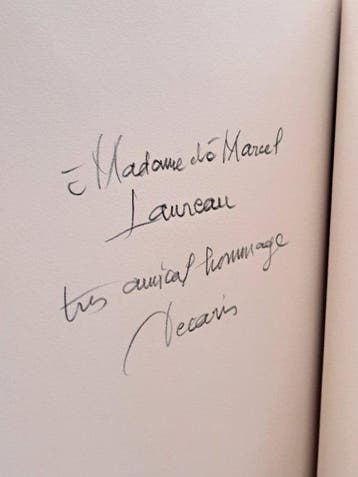 à Madame et à Marcel
Laureau
très amical hommage
Decaris